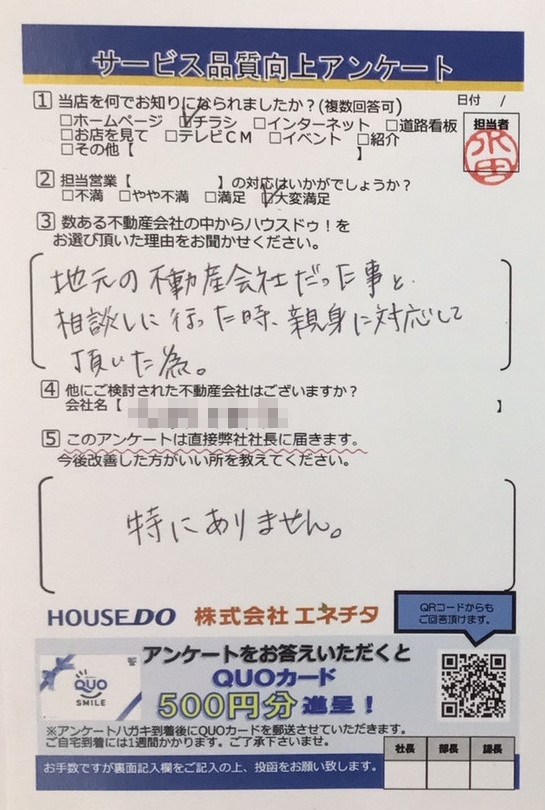 サービス品質向上アンケート
1 当店を何でお知りになられましたか?(複数回答可)
日付 /
□ホームページ ☑チラシ □インターネット □道路看板
□お店を見て □テレビCM □イベント □紹介
□その他【 】
担当者
2 担当営業【 】の対応はいかがでしょうか?
□不満 □やや不満 □満足 ☑大変満足
3 数ある不動産会社の中からハウスドゥ!を
お選び頂いた理由をお聞かせください。
地元の不動産会社だった事と
相談しに行った時、親身に対応して
頂いた為。
4 他にご検討された不動産会社はございますか?
会社名【 】
5 このアンケートは直接弊社社長に届きます。
今後改善した方がいい所を教えてください。
特にありません。
HOUSEDO 株式会社エネチタ
QRコードからも
ご回答頂けます。
アンケートをお答えいただくと
QUOカード
500円分進呈!
QUO
SMILE
※アンケートハガキ到着後にQUOカードを郵送させていただきます。
ご自宅到着には1週間かかります。ご了承下さいませ。
社長 部長 課長
お手数ですが裏面記入欄をご記入の上、投函をお願い致します。